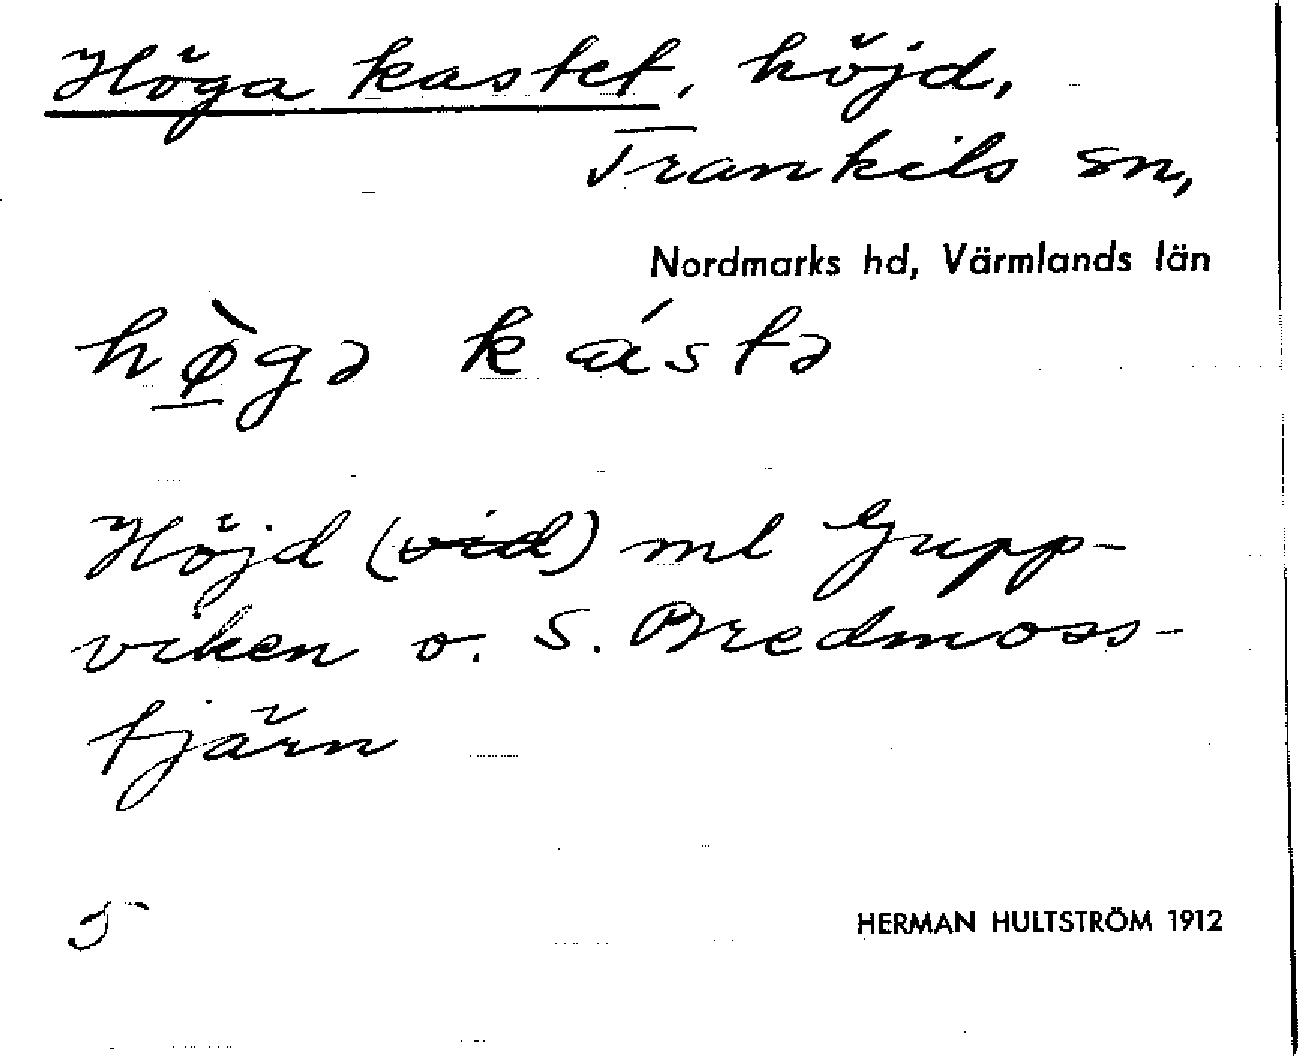 Höga kastet, höjd,
Trankils sn,
Nordmarks hd, Värmlands län
hø̱̀gə kástə
Höjd (vid) ml Gupp-
viken o. S. Bredmoss-
tjärn
5
HERMAN HULTSTRÖM 1912